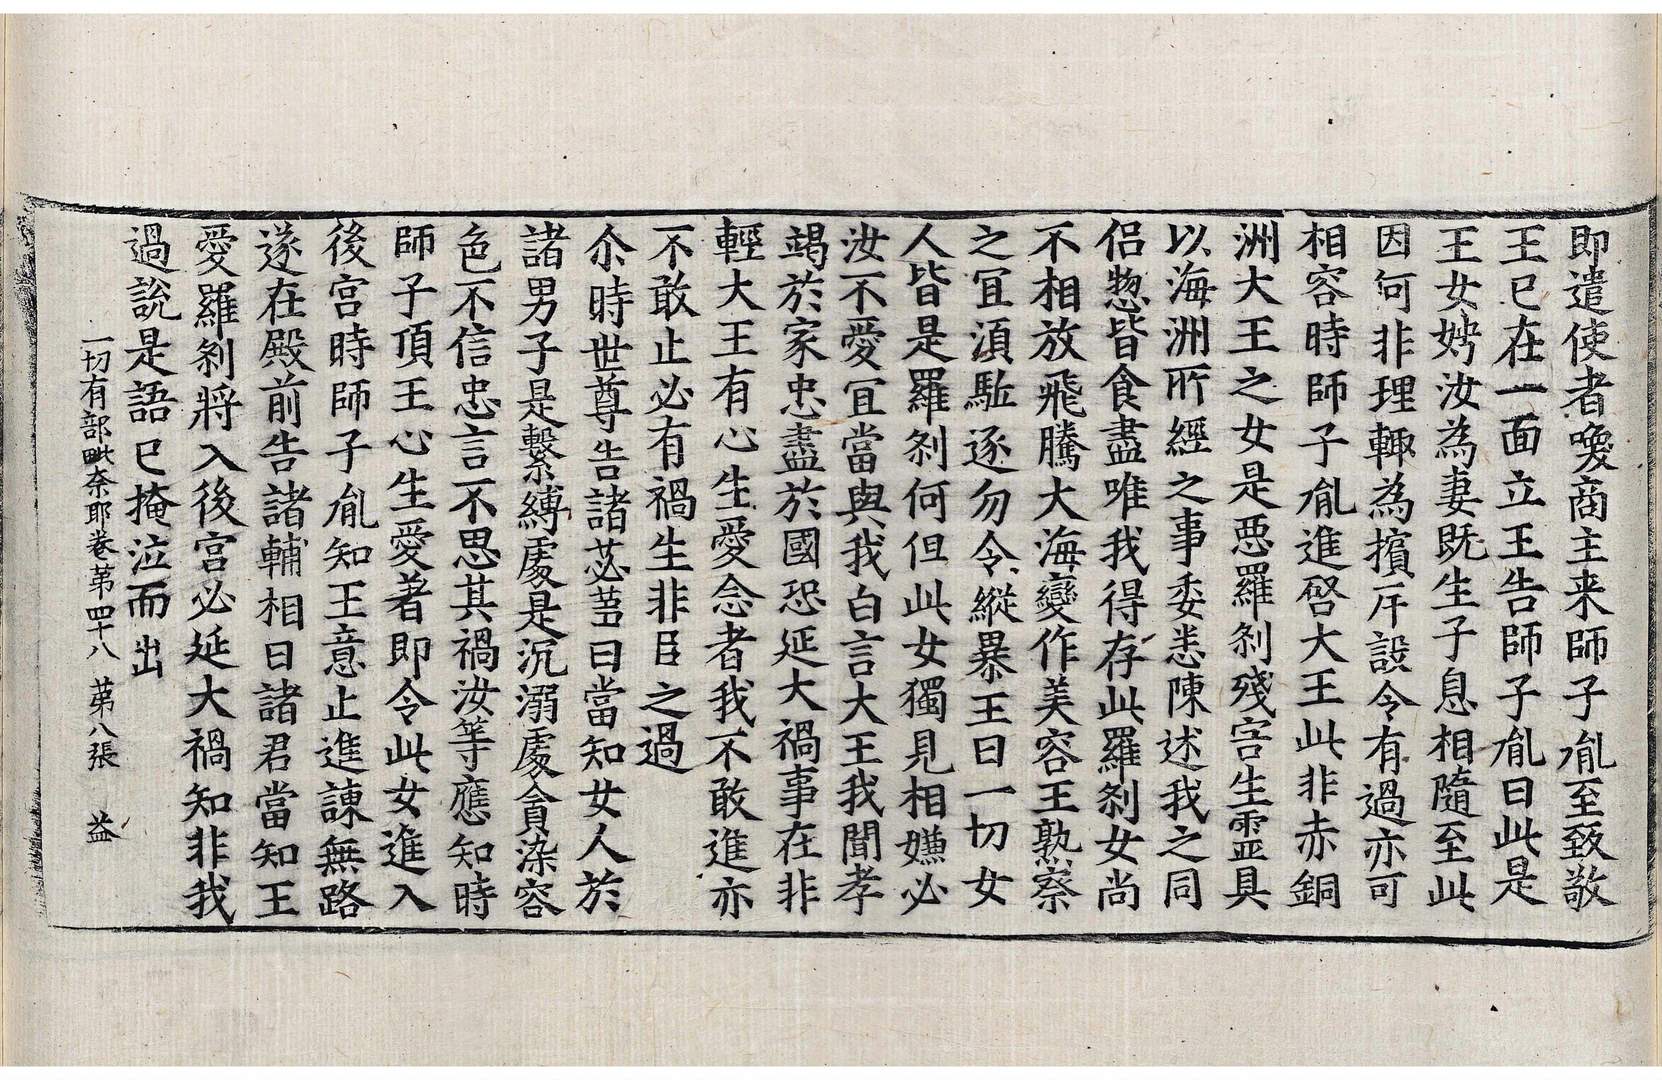 即遣使者喚商主来師子胤至致敬
王已在一面立王告師子胤曰此是
王女娉汝為妻既生子息相隨至此
因何非理輙為擯斥設令有過亦可
相容時師子胤進啓大王此非赤銅
洲大王之女是惡羅刹殘害生靈具
以海洲所經之事委悉陳述我之同
侶惣皆食盡唯我得存此羅刹女尚
不相放飛騰大海變作美容王熟察
之冝湏駈逐勿令縱暴王曰一切女
人皆是羅刹何但此女獨見相嫌必
汝不愛冝當與我白言大王我聞孝
竭於家忠盡於國恐延大禍事在非
輕大王有心生愛念者我不敢進亦
不敢止必有禍生非臣之過
尒時世尊告諸苾芻曰當知女人於
諸男子是繫縛處是沉溺處貪染容
色不信忠言不思其禍汝等應知時
師子頂王心生愛著即令此女進入
後宮時師子胤知王意止進諫無路
遂在殿前告諸輔相曰諸君當知王
愛羅刹將入後宮必延大禍知非我
過說是語已掩泣而出
一切有部毗奈耶卷第四十八 第八張 益